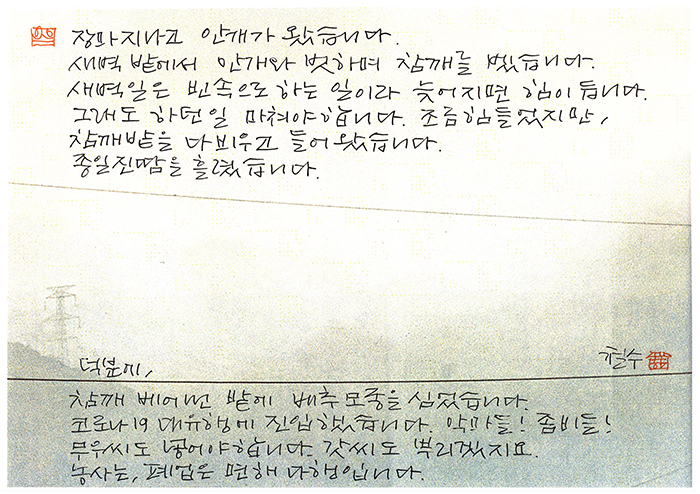 장마지나고 안개가 왔습니다.
새벽 밭에서 안개와 벗하며 참깨를 벴습니다.
새벽일은 빈속으로 하는 일이라 늦어지면 힘이 듭니다.
그래도 하던일 마쳐야 합니다. 조금 힘들었지만,
참깨밭을 다 비우고 들어왔습니다.
종일 진땀을 흘렸습니다.
덕분에,
철수
참깨 베어 낸 밭에 배추모종을 심었습니다.
코로나19 대유행에 진입했습니다. 악마들! 좀비들!
무우씨도 넣어야 합니다. 갓씨도 뿌리겠지요.
농사는, 폐업은 면해 다행입니다.